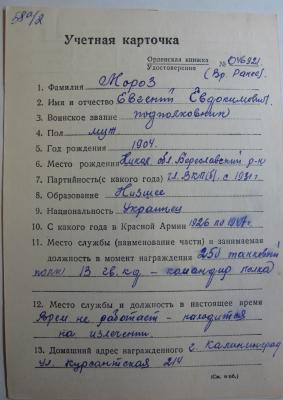 58а/2
Учетная карточка
Орденская книжка
Удостоверение № 046921.
(Вр. Ранее).
1. Фамилия Мороз
2. Имя и отчество Евгений Евдокимович
3. Воинское звание подполковник
4. Пол муж
5. Год рождения 1904.
6. Место рождения обл. Бериславский р-н
7. Партийность (с какого года) чл. ВКП(б). с 1931 г.
8. Образование Низшее
9. Национальность Украинец
10. С какого года в Красной Армии 1926 по 1947 г.
11. Место службы (наименование части) и занимаемая
должность в момент награждения 250 танковый
полк 13 гв. кд - командир полка
12. Место службы и должность в настоящее время
Врем. не работает - находится
на излечении.
13. Домашний адрес награжденного г. Калининград
ул. Курсантская 214
(См. н об.)